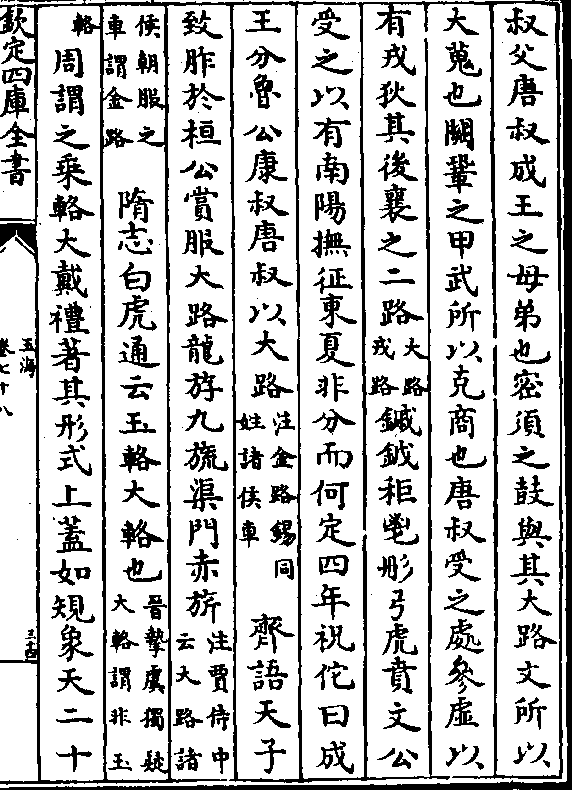 叔父唐叔成王之母弟也密須之鼓與其大路文所以
大蒐也闕鞏之甲武所以克商也唐叔受之處參虛以
有戎狄其後襄之二路大路戎路鏚鉞秬鬯彤弓虎賁文公
受之以有南陽撫征東夏非分而何定四年祝佗曰成
王分魯公康叔唐叔以大路注金路錫同姓諸侯車齊語天子
致胙於桓公賞服大路龍旂九旒渠門赤旂注賈侍中云大路諸
侯朝服之車謂金路隋志白虎通云玉輅大輅也晉摯虞獨疑大輅謂非玉
輅周謂之乘輅大戴禮著其形式上蓋如規象天二十
欽定四庫全書
玉海
卷七十八
三十四